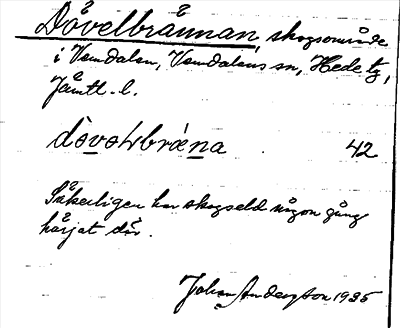 Dövelbrännan, skogsområde
i Vemdalen, Vemdalens sn, Hede tg,
Jämtl. l.
42
Säkerligen har skogseld någon gång
härjat där.
Johan Anderston 1935